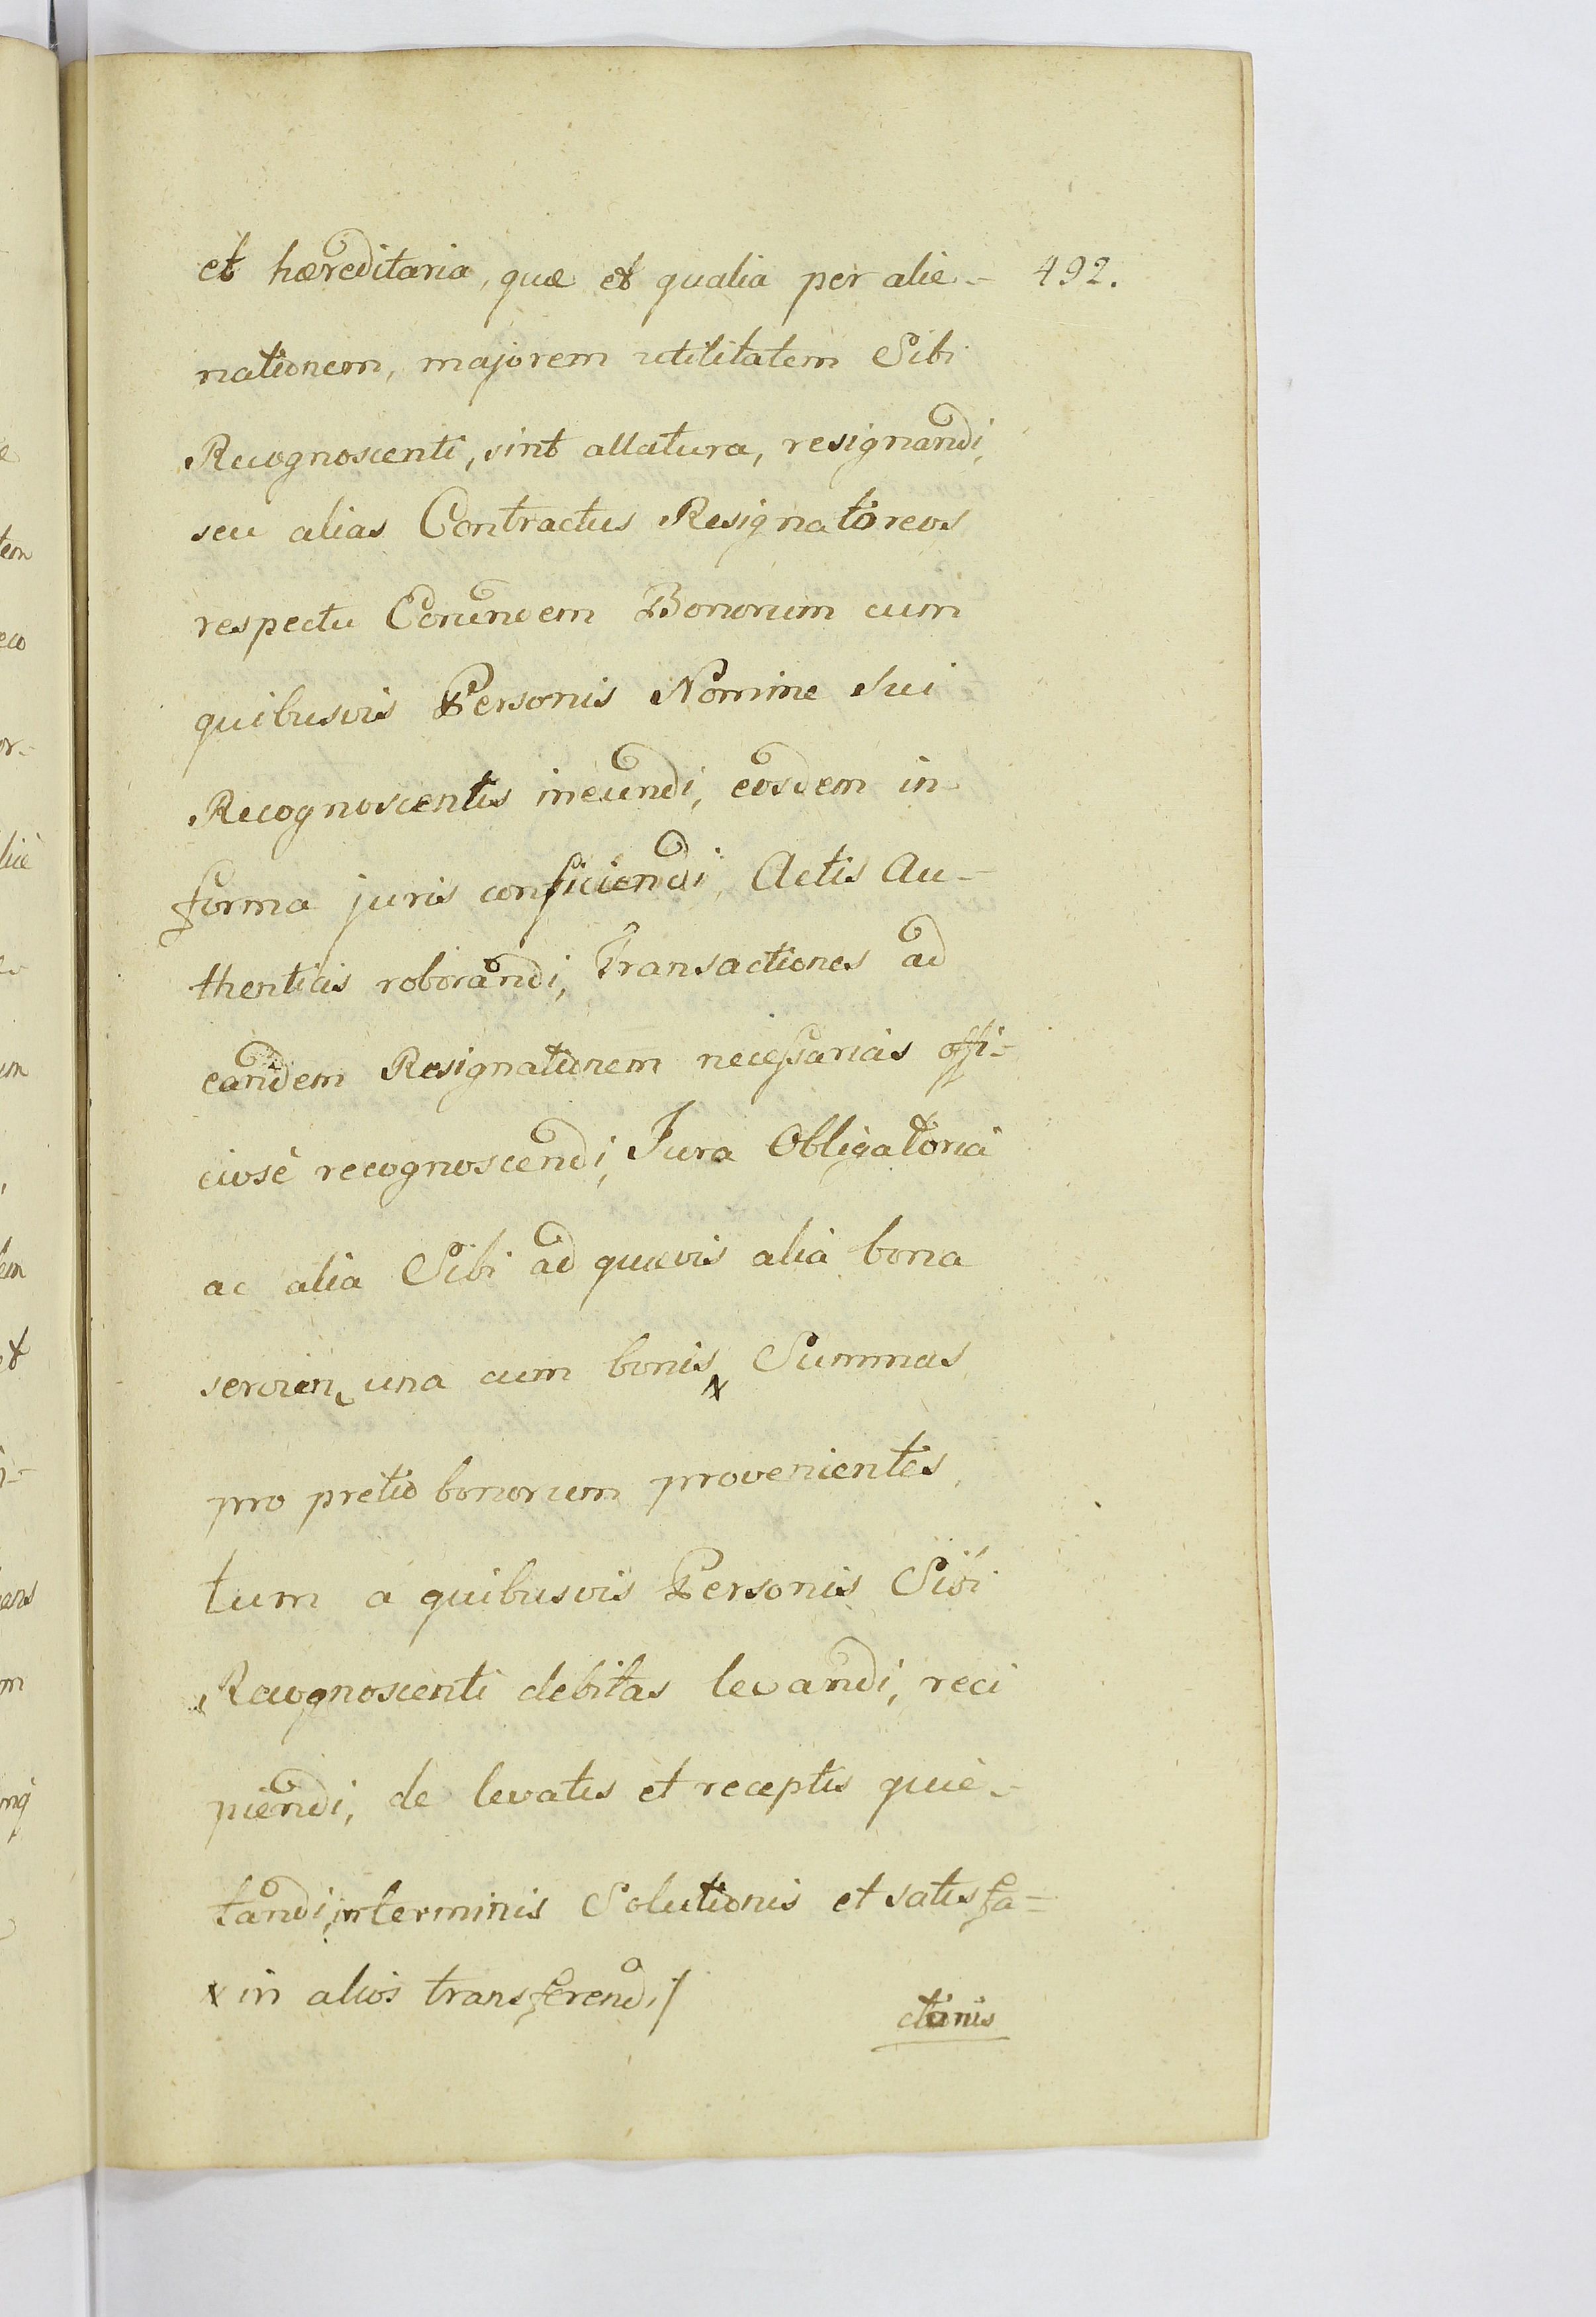 et hæreditaria, quæ et qualia per alie- 492.
nationem, majorem utilitatem Sibi
Recognoscenti, sint allatura, resignandi,
seu alias Contractus Resignatoreos
respectu Eorundem Bonorum cum
quibusvis Personis Nomine sui
Recognoscentis ineundi, eosdem in
forma juris conficiendi, Actis Au-
thenticis roborandi, Transactiones ad
eandem Resignationem necessarias offi-
ciosè recognoscendi, Jura Obligatoria
ac alia Sibi ad quævis alia bona
servien una cum bonis x Summas
pro pretio bonorum provenientes,
tum a quibusvis Personis Sibi
Recognoscenti debitas levandi, reci
piendi, de levatis et receptis quie-
tandi, in terminis Solutionis et satisfa-
x in alios transferendi/
ctionis